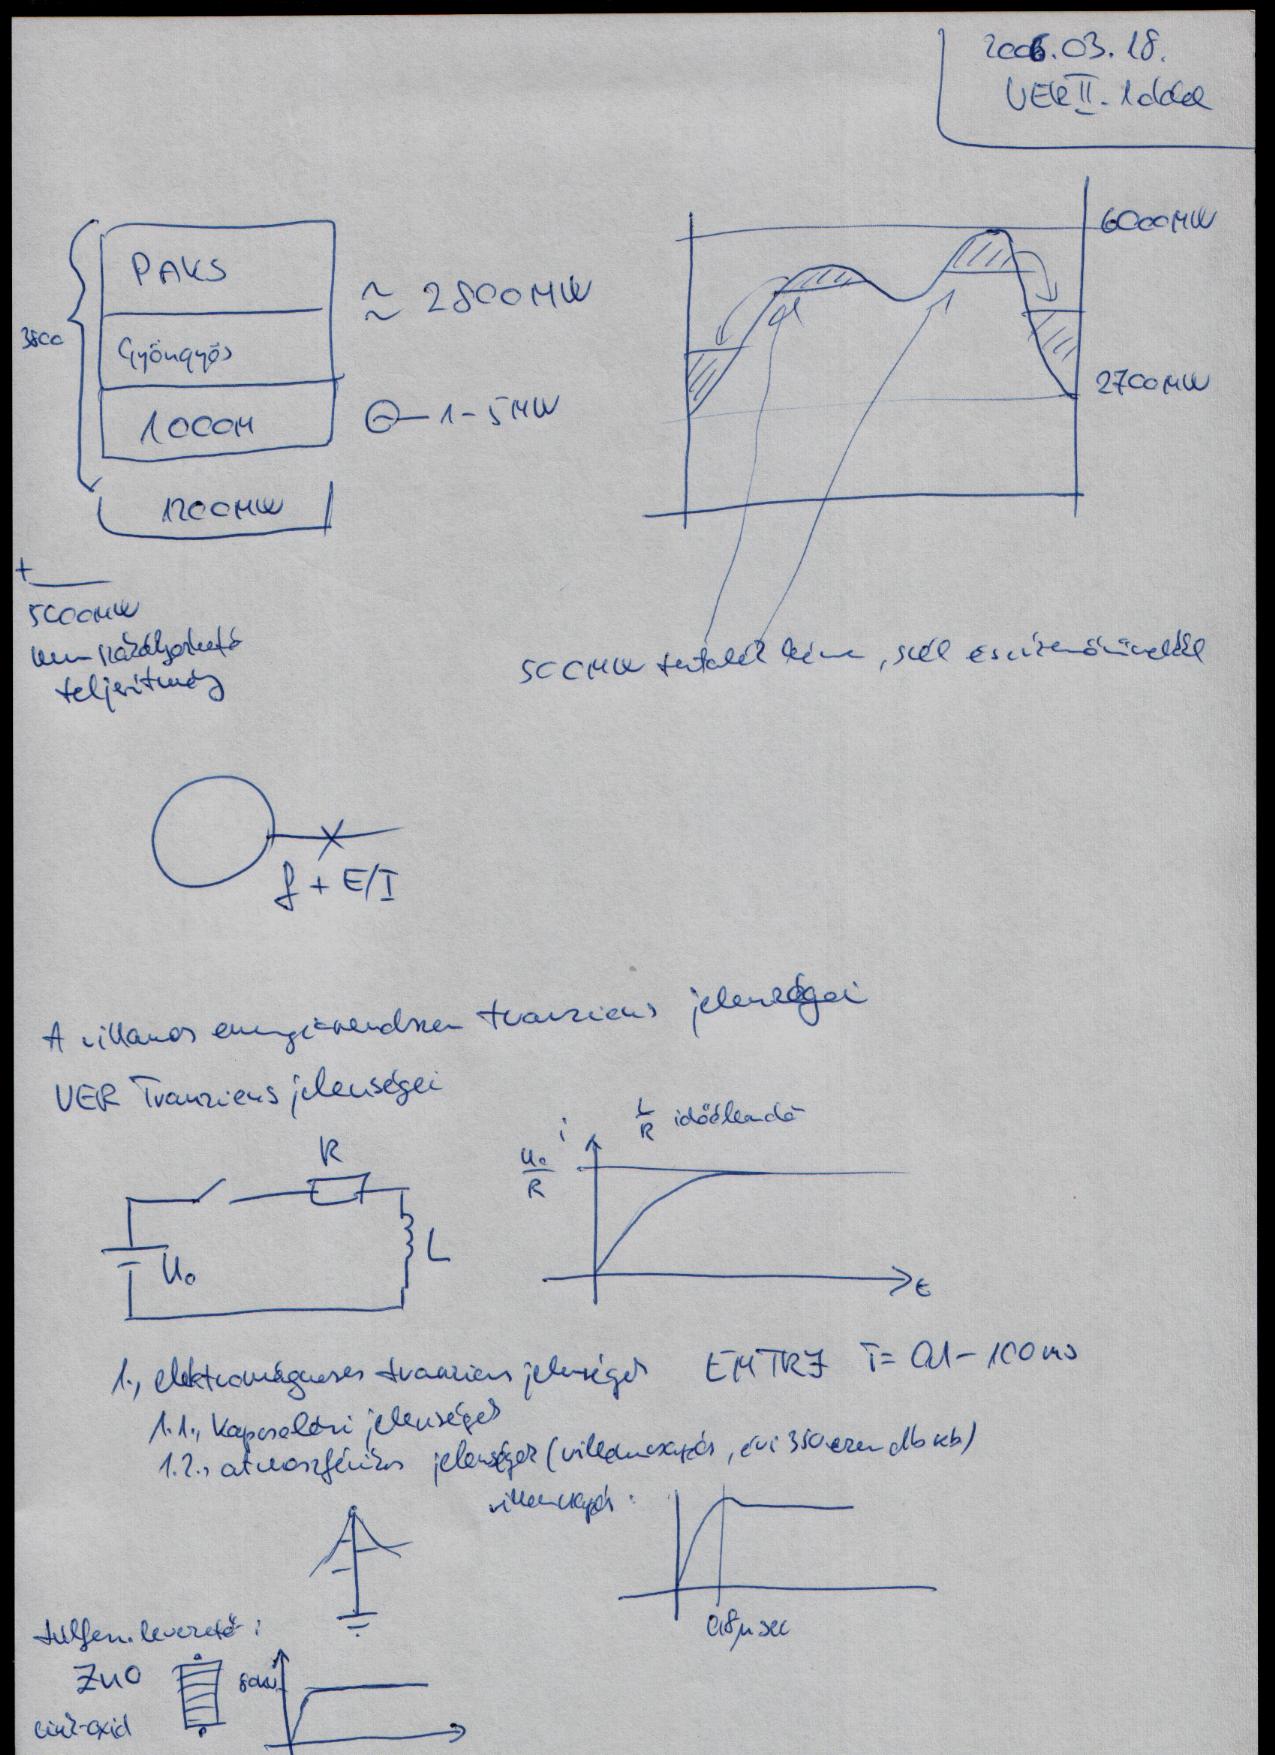 2006.03.18.
VER II. 1. oldal
3800
PAKS
Gyöngyös
1000M
1200MW
≈ 2800MW
1-5MW
+
5000MW
nem szabályozható
teljesítmény
6000MW
2700MW
500MW tartalék kéne, szél és
f + E/I
A villamos energiarendszer tranziens jelenségei
VER Tranziens jelenségei
R
U₀
L
i
L/R időállandó
U₀/R
t
1., elektromágneses tranziens jelenségek EMTRJ T= 0,1-100ms
1.1., Kapcsolási jelenségek
1.2., atmoszférikus jelenségek (villámcsapás, évi 350 ezer db kb)
villámcsapás:
0,8μsec
túlfesz. levezető:
ZnO
cink-oxid